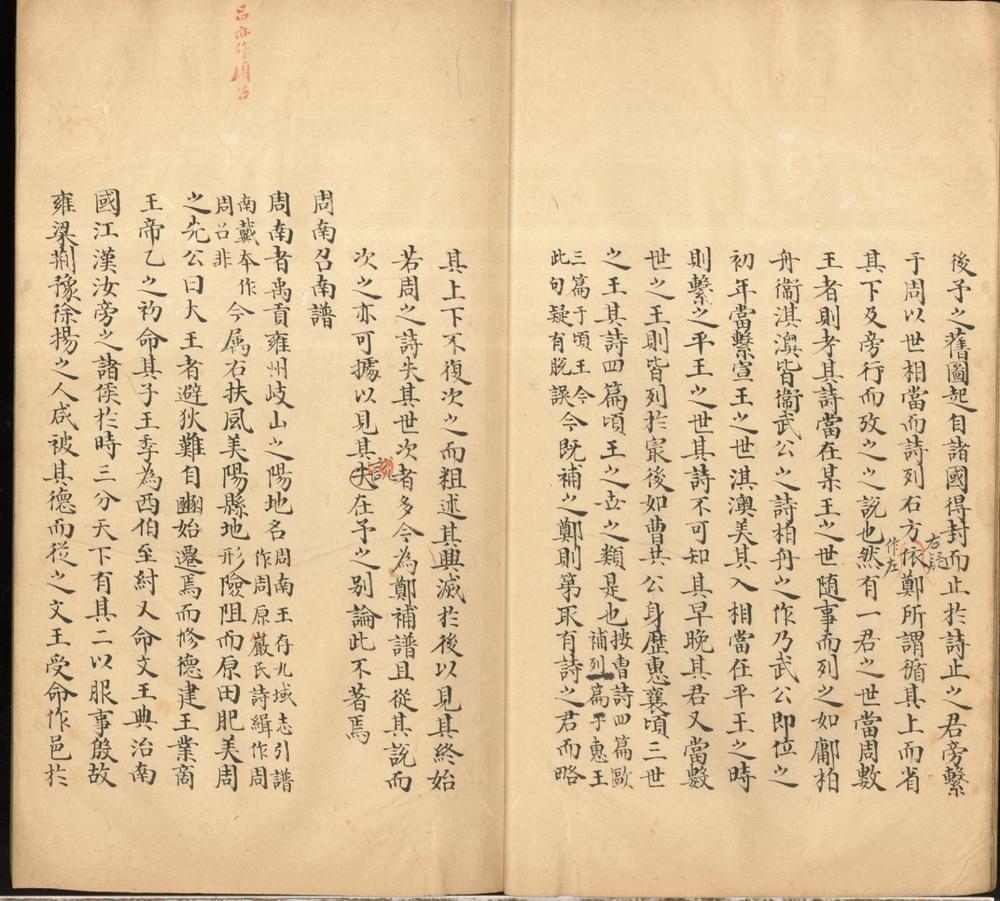 後予之舊圖起自諸國得封而止於詩止之君旁繫
于周以世相當而詩列右方依鄭所謂循其上而省
右疑
作左
其下及旁行而攷之之說也然有一君之世當周數
王者則考其詩當在某王之世随事而列之如鄘柏
舟衞淇澳皆衞武公之詩柏舟之作乃武公即位之
初年當繫宣王之世淇澳美其入相當在平王之時
則繫之平王之世其詩不可知其早晚其君又當數
世之王則皆列於㝡後如曹共公身歷惠襄頃三世
之王其詩四篇頃王之世之類是也按曹詩四篇歐
補列一篇于惠王
三篇于頃王今
此句疑有脫誤今既補之鄭則第取有詩之君而略
其上下不復次之而粗述其興滅於後以見其終始
若周之詩失其世次者多今為鄭補譜且從其說而
次之亦可據以見其失在予之别論此不著焉
說
周南召南譜
周南者禹貢雍州岐山之陽地名周南王存九域志引譜
作周原嚴氏詩緝作周
南戴本作
周召非今属右扶風美陽縣地形險阻而原田肥美周
之先公曰大王者避狄難自豳始遷焉而修德建王業商
王帝乙之初命其子王季為西伯至紂又命文王典治南
國江漢汝旁之諸侯於時三分天下有其二以服事殷故
雍梁荆豫徐揚之人咸被其德而從之文王受命作邑於
呂亦作周召